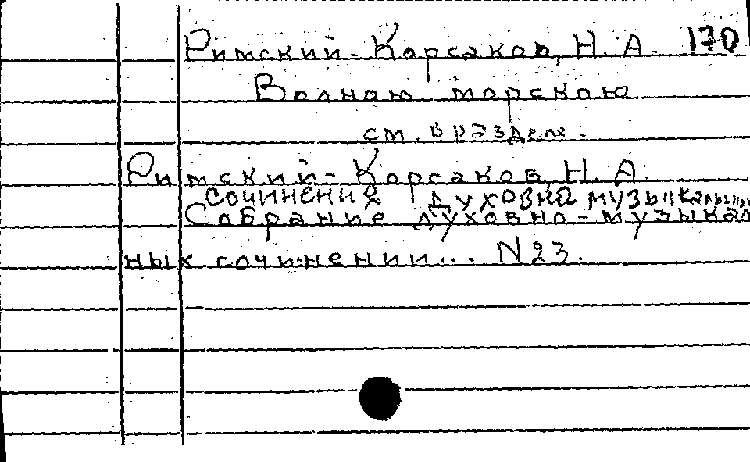 Римский-Корсаков, Н. А. 170
Волною морскою
см. в разделе.
Римский-Корсаков, Н. А.
сочинения духовно музыкальныя
Собрание духовно-музыкаль
ных сочинении... N 23.